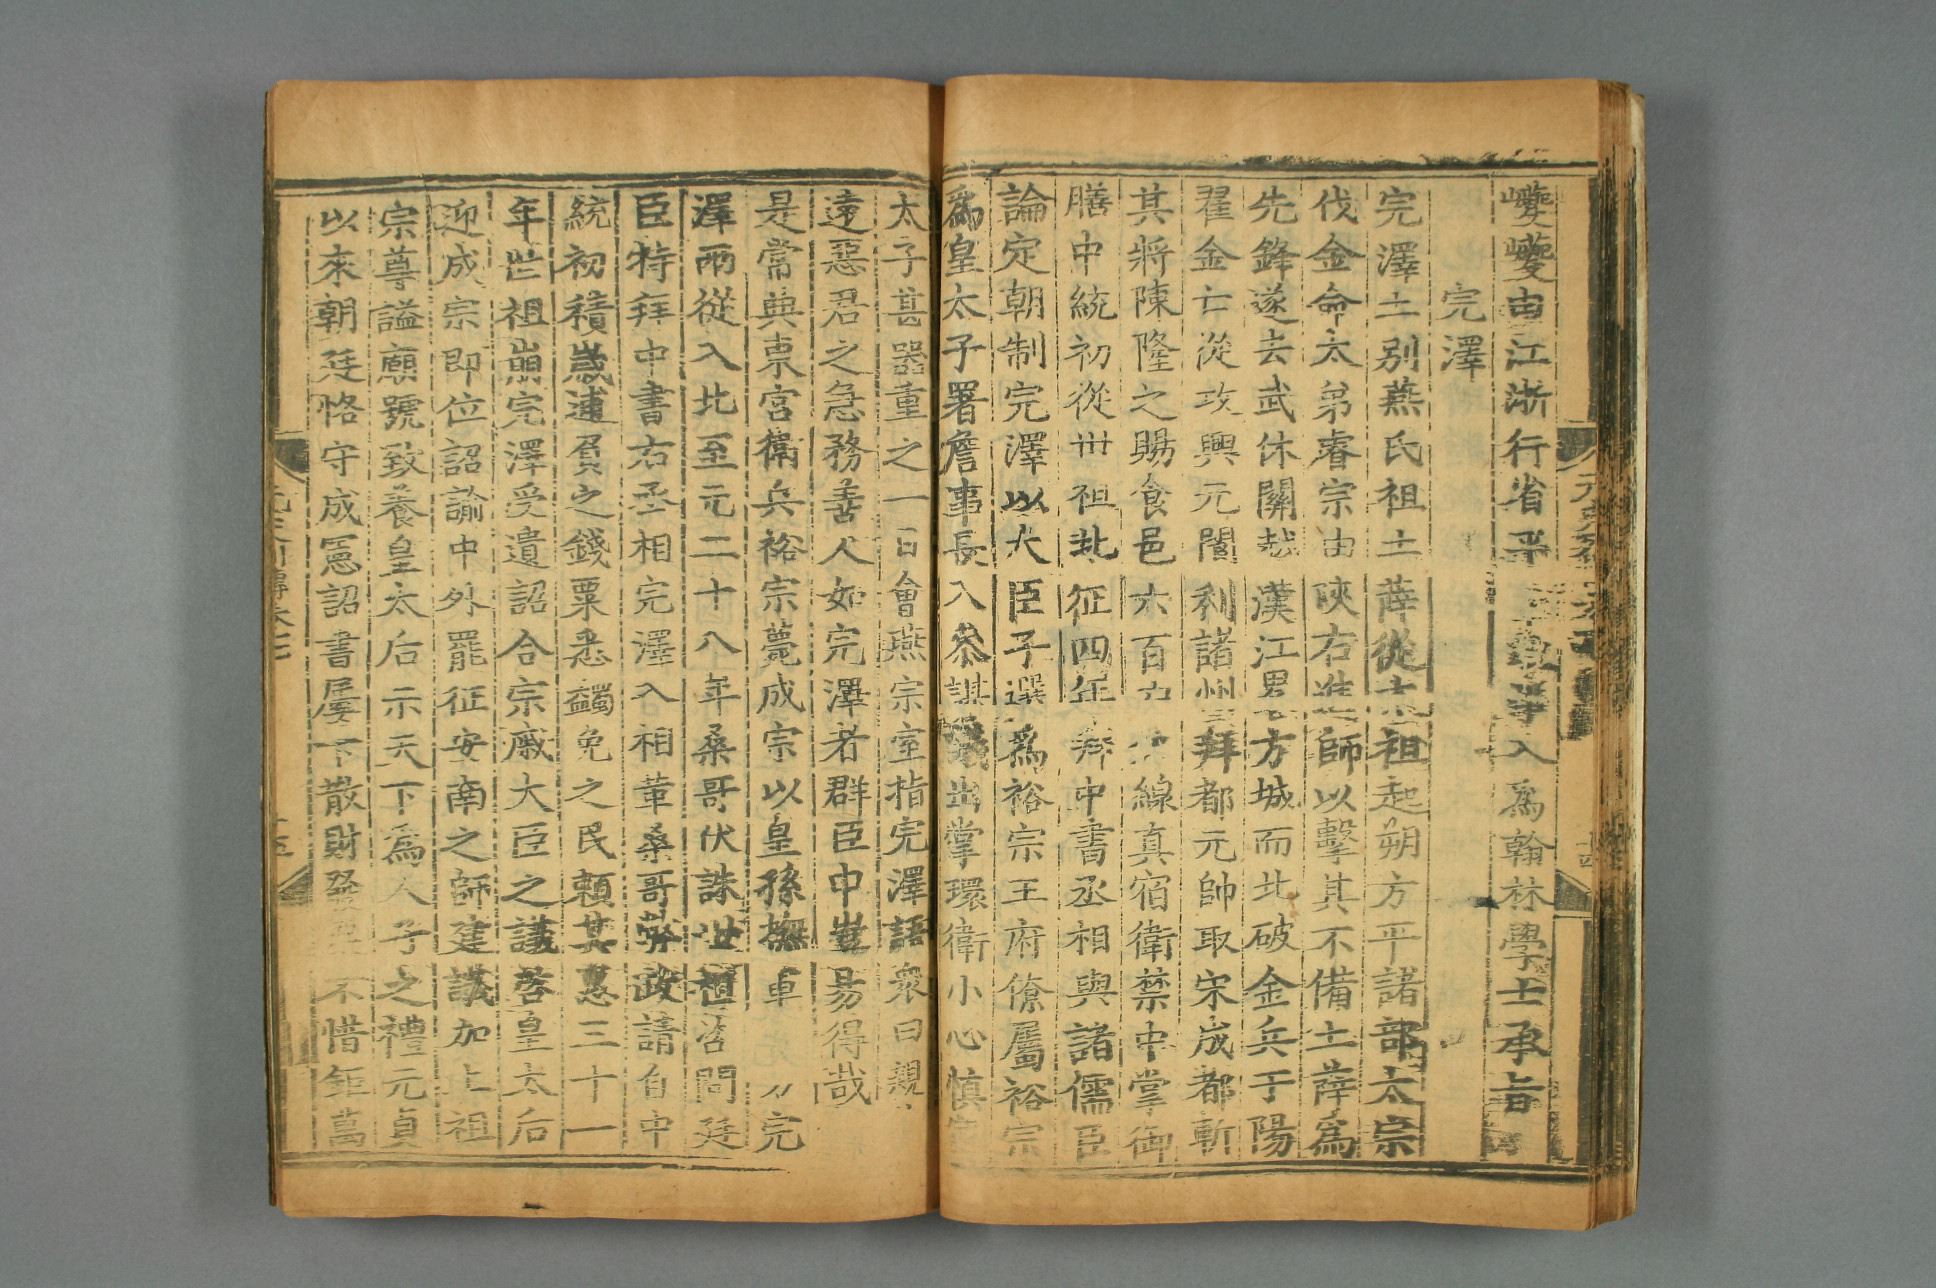 夔夔由江浙行省平章入爲翰林學士承旨
完澤
完澤土別燕氏祖土薛從太祖起朔方平諸部太宗
伐金命太弟睿宗由陝右進師以擊其不備土薛爲
先鋒遂去武休關越漢江方城而北破金兵于陽
翟金亡從攻興元閬利諸州拜都元帥取宋成都斬
其將陳隆之賜食邑六百線真宿衛禁中掌御
膳中統初從世祖北征四年拜中書丞相與諸儒臣
論定朝制完澤以大臣子選爲裕宗王府僚屬裕宗
爲皇太子署詹事長入參謀出掌環衛小心慎
太子甚器重之一日會燕宗室指完澤語衆曰親
遠惡君之急務善人如完澤者群臣中豈易得哉
是常典東宮衛兵裕宗薨成宗以皇孫撫軍完
澤兩從入北至元二十八年桑哥伏誅世祖咨問廷
臣特拜中書右丞相完澤入相革桑哥弊政請自中
統初積歲逋負之錢粟悉蠲免之民賴其惠三十一
年世祖崩完澤受遺詔合宗戚大臣之議啓皇太后
迎成宗即位詔諭中外罷征安南之師建議加上祖
宗尊謚廟號致養皇太后示天下爲人子之禮元貞
以來朝廷恪守成憲詔書屢下散財發不惜鉅萬